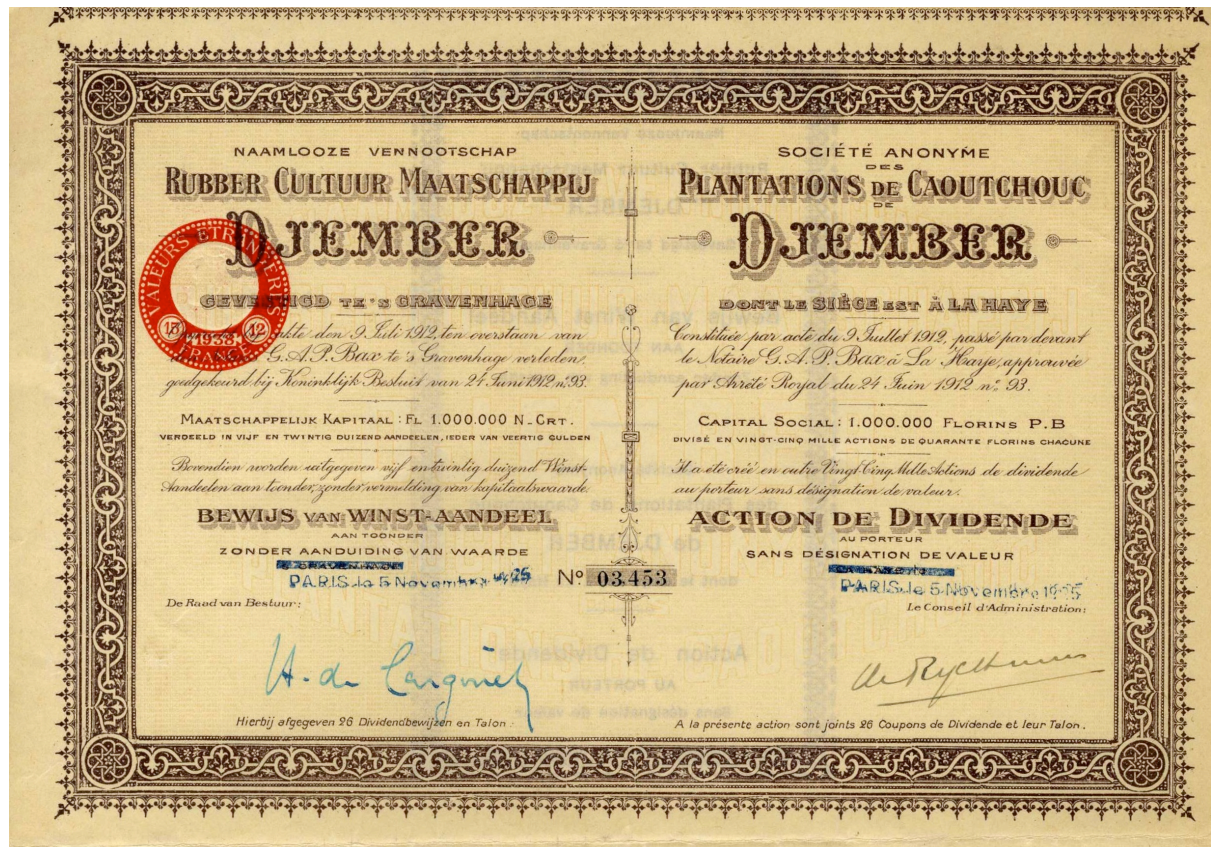 NAAMLOOZE VENNOOTSCHAP
RUBBER CULTUUR MAATSCHAPPIJ
DJEMBER
GEVESTIGD TE 'S GRAVENHAGE
den 9 Juli 1912, ten overstaan van
G. A. P. Bax te 's Gravenhage verleden,
goedgekeurd bij Koninklijk Besluit van 24 Juni 1912 nº 93.
MAATSCHAPPELIJK KAPITAAL : FL 1.000.000 N_CRT.
VERDEELD IN VIJF EN TWINTIG DUIZEND AANDEELEN, IEDER VAN VEERTIG GULDEN
Bovendien worden uitgegeven vijf en twintig duizend Winst-
Aandeelen aan toonder, zonder vermelding van kapitaalswaarde.
BEWIJS VAN WINST-AANDEEL
AAN TOONDER
ZONDER AANDUIDING VAN WAARDE
PARIS, le 5 Novembre 1925
De Raad van Bestuur:
Hierbij afgegeven 26 Dividendbewijzen en Talon.
VALEURS ETRANGERES
13 1938 12
FRANCE
Nº 03.453
SOCIÉTÉ ANONYME
DES
PLANTATIONS DE CAOUTCHOUC
DE
DJEMBER
DONT LE SIÈGE EST À LA HAYE
Constituée par acte du 9 Juillet 1912, passé par devant
le Notaire G. A. P. Bax à La Haye, approuvée
par Arrêté Royal du 24 Juin 1912 nº 93.
CAPITAL SOCIAL : 1.000.000 FLORINS P.B
DIVISÉ EN VINGT-CINQ MILLE ACTIONS DE QUARANTE FLORINS CHACUNE
Il a été créé en outre Vingt Cinq Mille Actions de dividende
au porteur sans désignation de valeur.
ACTION DE DIVIDENDE
AU PORTEUR
SANS DÉSIGNATION DE VALEUR
PARIS, le 5 Novembre 1925
Le Conseil d'Administration:
A la présente action sont joints 26 Coupons de Dividende et leur Talon.